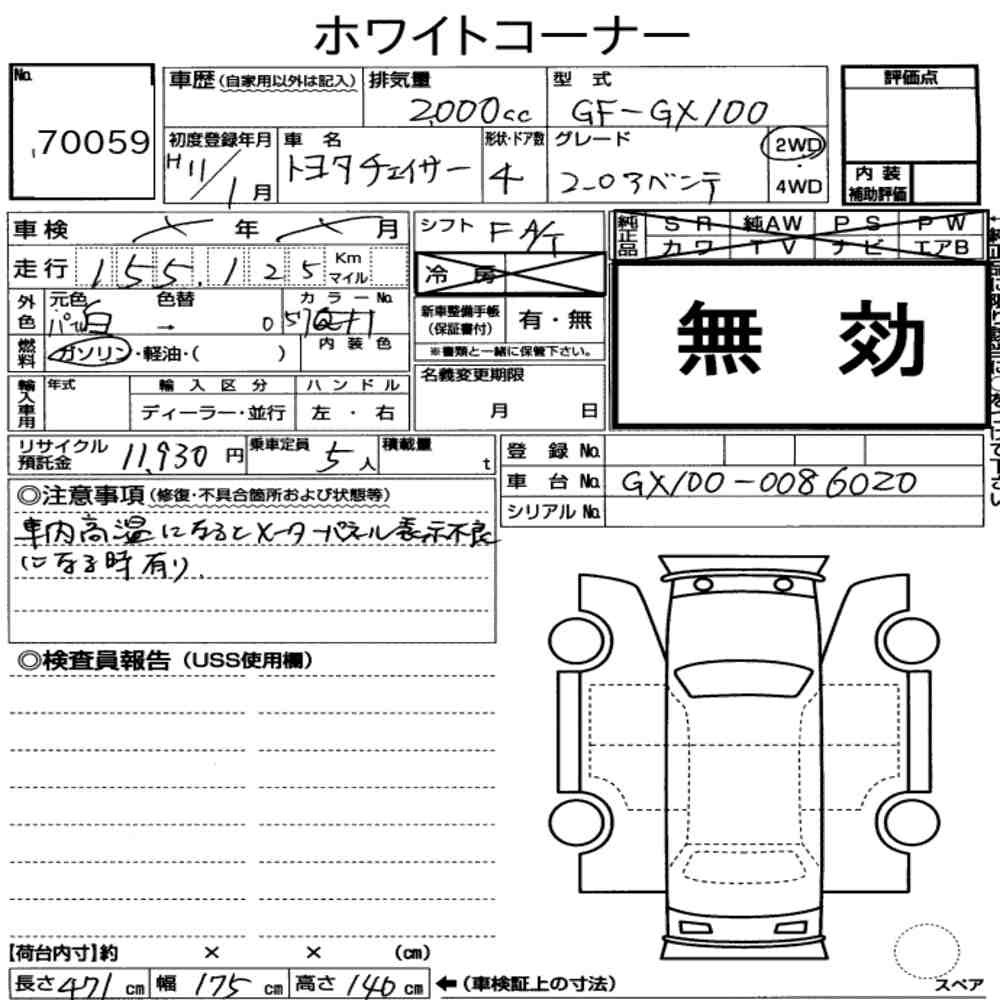 ホワイトコーナー
No. 70059
車歴(自家用以外は記入) 排気量 2,000cc 型式 GF-GX100
初度登録年月 H11/1月 車名 トヨタチェイサー 形状・ドア数 4 グレード 2WD 4WD
評価点
内装補助評価
車検 年 月
シフト FAT
純正品 SR 純AW PS PW
カワ TV ナビ エアB
走行 155,125 Km マイル
冷房
無効
外色 元色 パール白 色替 → カラーNo. 057
新車整備手帳(保証書付) 有・無
※書類と一緒に保管下さい。
燃料 ガソリン・軽油・( ) 内装色
名義変更期限 月 日
輸入車用 年式 輸入区分 ハンドル
ディーラー・並行 左・右
リサイクル預託金 11,930円 乗車定員 5人 積載量 t
登録No.
車台No. GX100-0086020
シリアルNo.
◎注意事項(修復・不具合箇所および状態等)
車内高温になるとメーターパネル表示不良
になる時有り.
◎検査員報告(USS使用欄)
【荷台内寸】約 × × (cm)
長さ471cm 幅175cm 高さ140cm ←(車検証上の寸法)
スペア